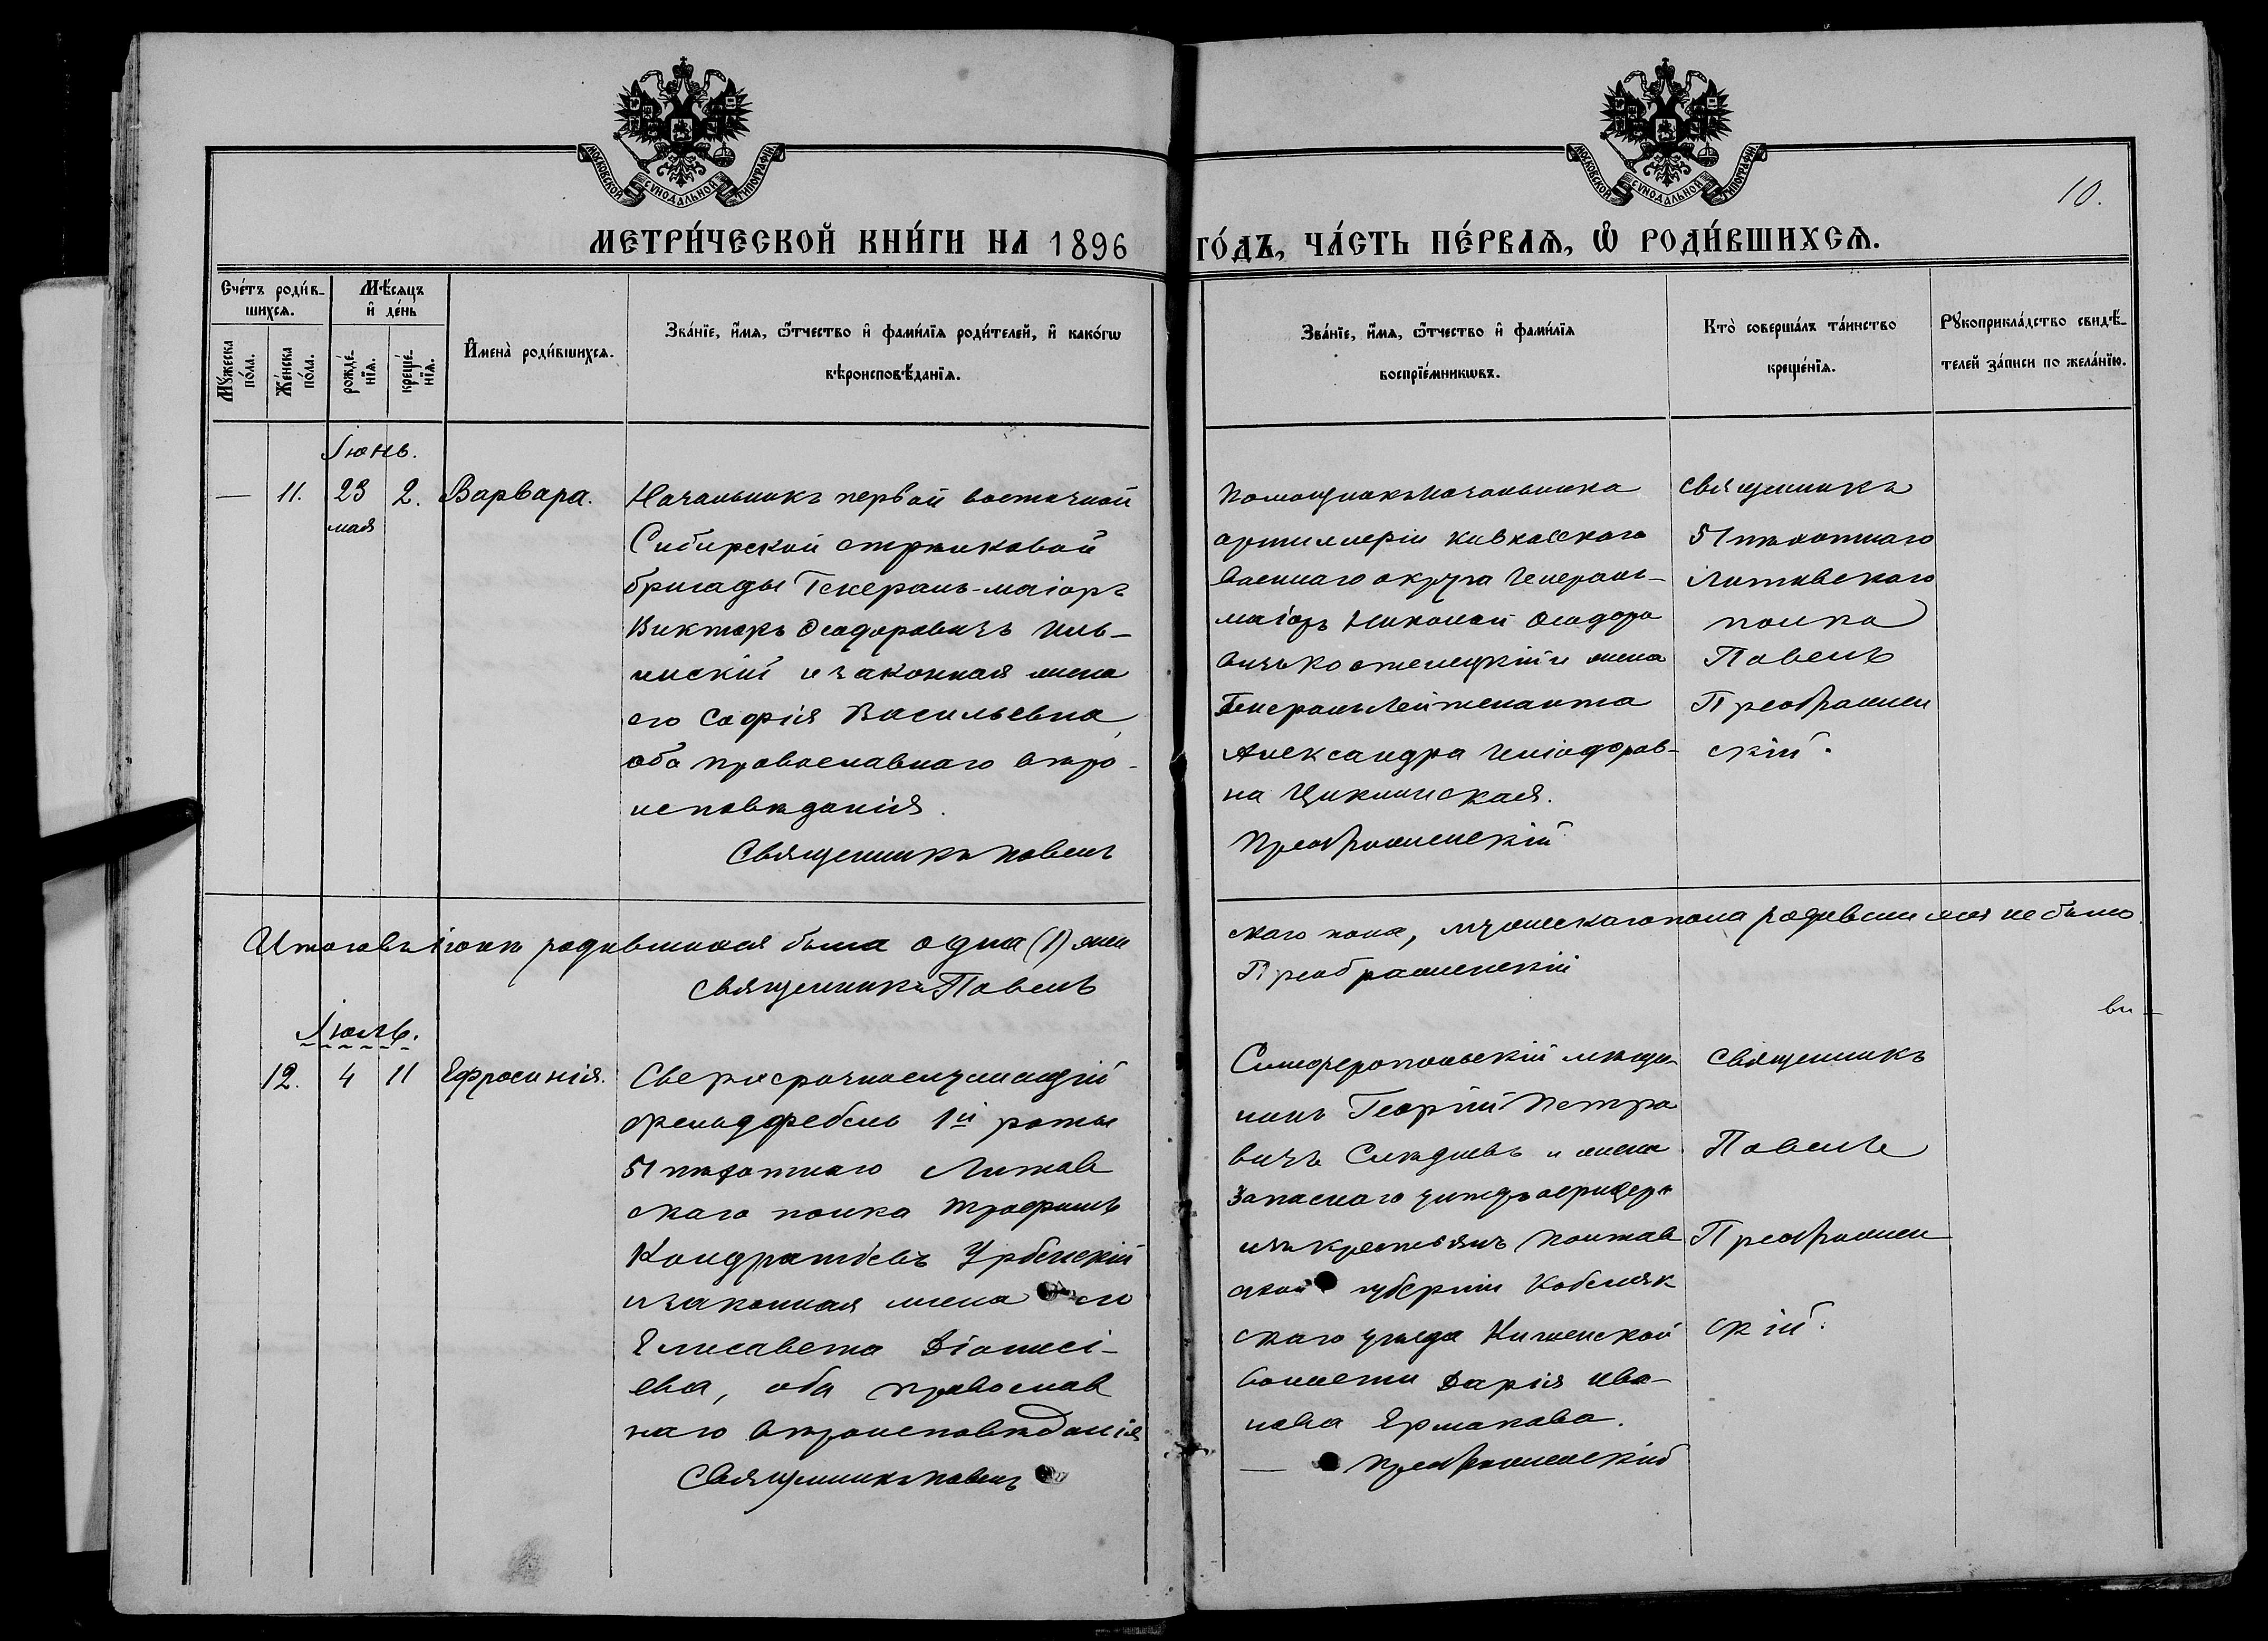 МОСКОВСКОЙ СѴНОДАЛЬНОЙ ТИПОГРАФІИ
МОСКОВСКОЙ СѴНОДАЛЬНОЙ ТИПОГРАФІИ
10.
МЕТРИ́ЧЕСКОЙ КНИ́ГИ НА 1896
ГО́ДЪ, ЧА́СТЬ ПЕ́РВАѦ, Ѡ҆ РОДИ́ВШИХСѦ.
Сче́тъ роди́в-
шихсѧ.
Мꙋ́жеска по́ла.
Же́нска по́ла.
Мѣ́сѧцъ
и҆ де́нь
рожде́-
нїѧ.
креще́-
нїѧ.
И҆мена̀ роди́вшихсѧ.
Зва́нїе, и҆́мѧ, ѻ҆́тчество и҆ фами́лїѧ роди́телей, и҆ како́гѡ
вѣроисповѣ́данїѧ.
Зва́нїе, и҆́мѧ, ѻ҆́тчество и҆ фами́лїѧ
воспрїе́мникѡвъ.
Кто̀ соверша́лъ та́инство
креще́нїѧ.
Рꙋкоприкла́дство свидѣ́-
телей за́писи по жела́нїю.
Іюнь.
— 11. 23 2. Варвара.
мая
Начальникъ первой восточной
Сибирской стрѣлковой
бригады Генералъ-маіоръ
Викторъ Ѳеодоровичъ Иль-
инскій и законная жена
его Софія Васильевна,
оба православнаго вѣро-
исповѣданія.
Священникъ Павелъ
Помощникъ Начальника
артиллеріи Кавказскаго
военнаго округа Генералъ-
маіоръ Николай Ѳеодоро
вичъ Костенецкій и жена
Генералъ Лейтенанта
Александра Иліодоров-
на Циклинская.
Преображенскій
Священникъ
51 пѣхотнаго
Литовскаго
полка
Павелъ
Преображен
скій.
Итого въ Іюнѣ родившихся была одна (1) жен
Священникъ Павелъ
скаго пола, мужескаго пола родившихся не было.
Преображенскій
Іюль.
12. 4 11 Ефросинія.
Сверхсрочнослужащій
фельдфебель 1й роты
51 пѣхотнаго Литов
скаго полка Трофимъ
Кондратьевъ Урбенскій
и законная жена его
Елисавета Діонисі-
ева, оба православ
наго вѣроисповѣданія
Священникъ Павелъ
Симферопольскій мѣща-
нинъ Георгій Петро
вичъ и жена
Запаснаго унтеръ офицера
изъ крестьянъ Полтав
ской губерніи Кобеляк
скаго уѣзда Кишенской
волости Дарія Ива-
нова Ермакова.
— Преображенскій
Священникъ
Павелъ
Преображен
скій.